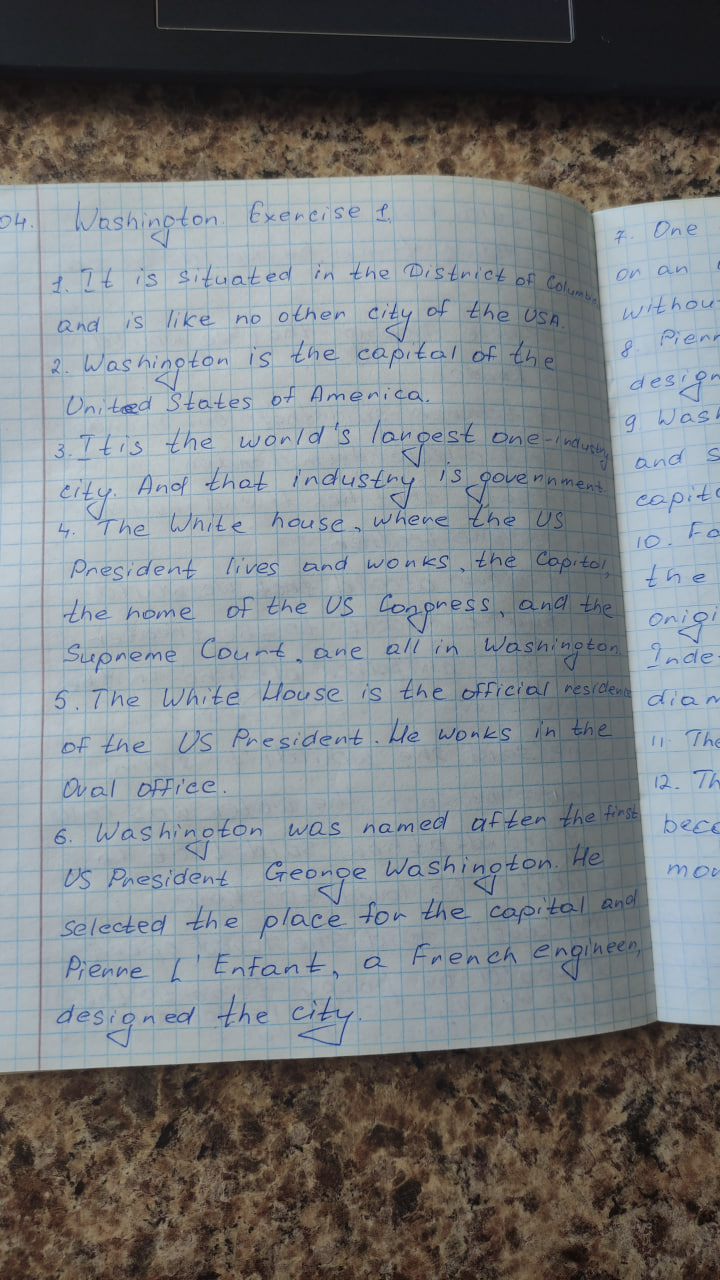 04. Washington. Exercise 1.
1. It is situated in the District of Columbia
and is like no other city of the USA.
2. Washington is the capital of the
United States of America.
3. It is the world's largest one-industry
city. And that industry is government.
4. The White house, where the US
President lives and works, the Capitol,
the home of the US Congress, and the
Supreme Court, are all in Washington.
5. The White House is the official residence
of the US President. He works in the
Oval office.
6. Washington was named after the first
US President George Washington. He
selected the place for the capital and
Pierre L'Enfant, a French engineer,
designed the city.
7. One
on an
withou
8. Pierr
design
9. Wash
and s
capit
10. Fo
the
origi
Inde
diam
11. The
12. Th
beco
mov